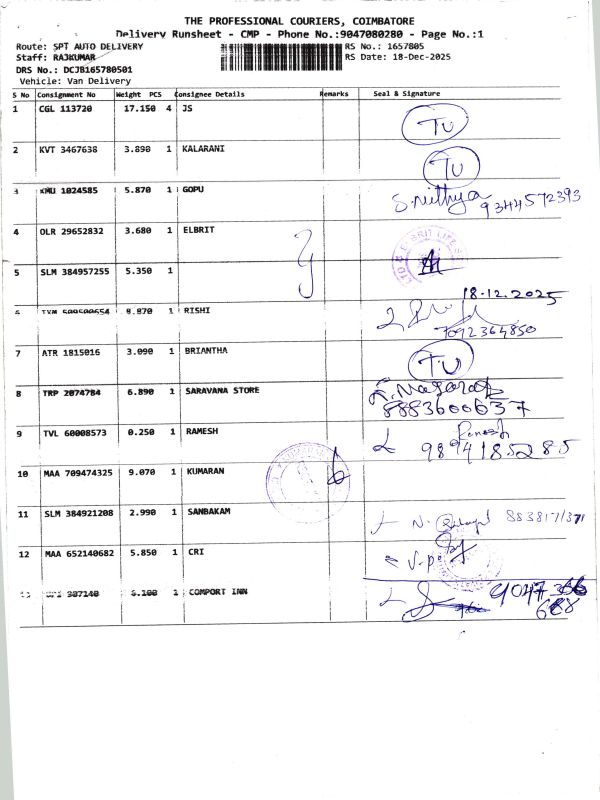 THE PROFESSIONAL COURIERS, COIMBATORE
Delivery Runsheet - CMP - Phone No.:9047080280 - Page No.:1
Route: SPT AUTO DELIVERY
RS No.: 1657805
Staff: RAJKUMAR
RS Date: 18-Dec-2025
DRS No.: DCJB165780501
Vehicle: Van Delivery
S No Consignment No Weight PCS Consignee Details Remarks Seal & Signature
1 CGL 113720 17.150 4 JS TU
2 KVT 3467638 3.890 1 KALARANI TU
3 KMU 1024585 5.870 1 GOPU Snithya 9344572393
4 OLR 29652832 3.680 1 ELBRIT
5 SLM 384957255 5.350 1
18-12.2025
6 8.870 1 RISHI 7092364850
7 ATR 1815016 3.090 1 BRIANTHA TU
8 TRP 2074784 6.890 1 SARAVANA STORE
8883600637
9 TVL 60008573 0.250 1 RAMESH Ramesh
9894185285
10 MAA 709474325 9.070 1 KUMARAN
11 SLM 384921208 2.990 1 SANBAKAM
12 MAA 652140682 5.850 1 CRI
V.P.
907140 6.100 1 COMPORT INN